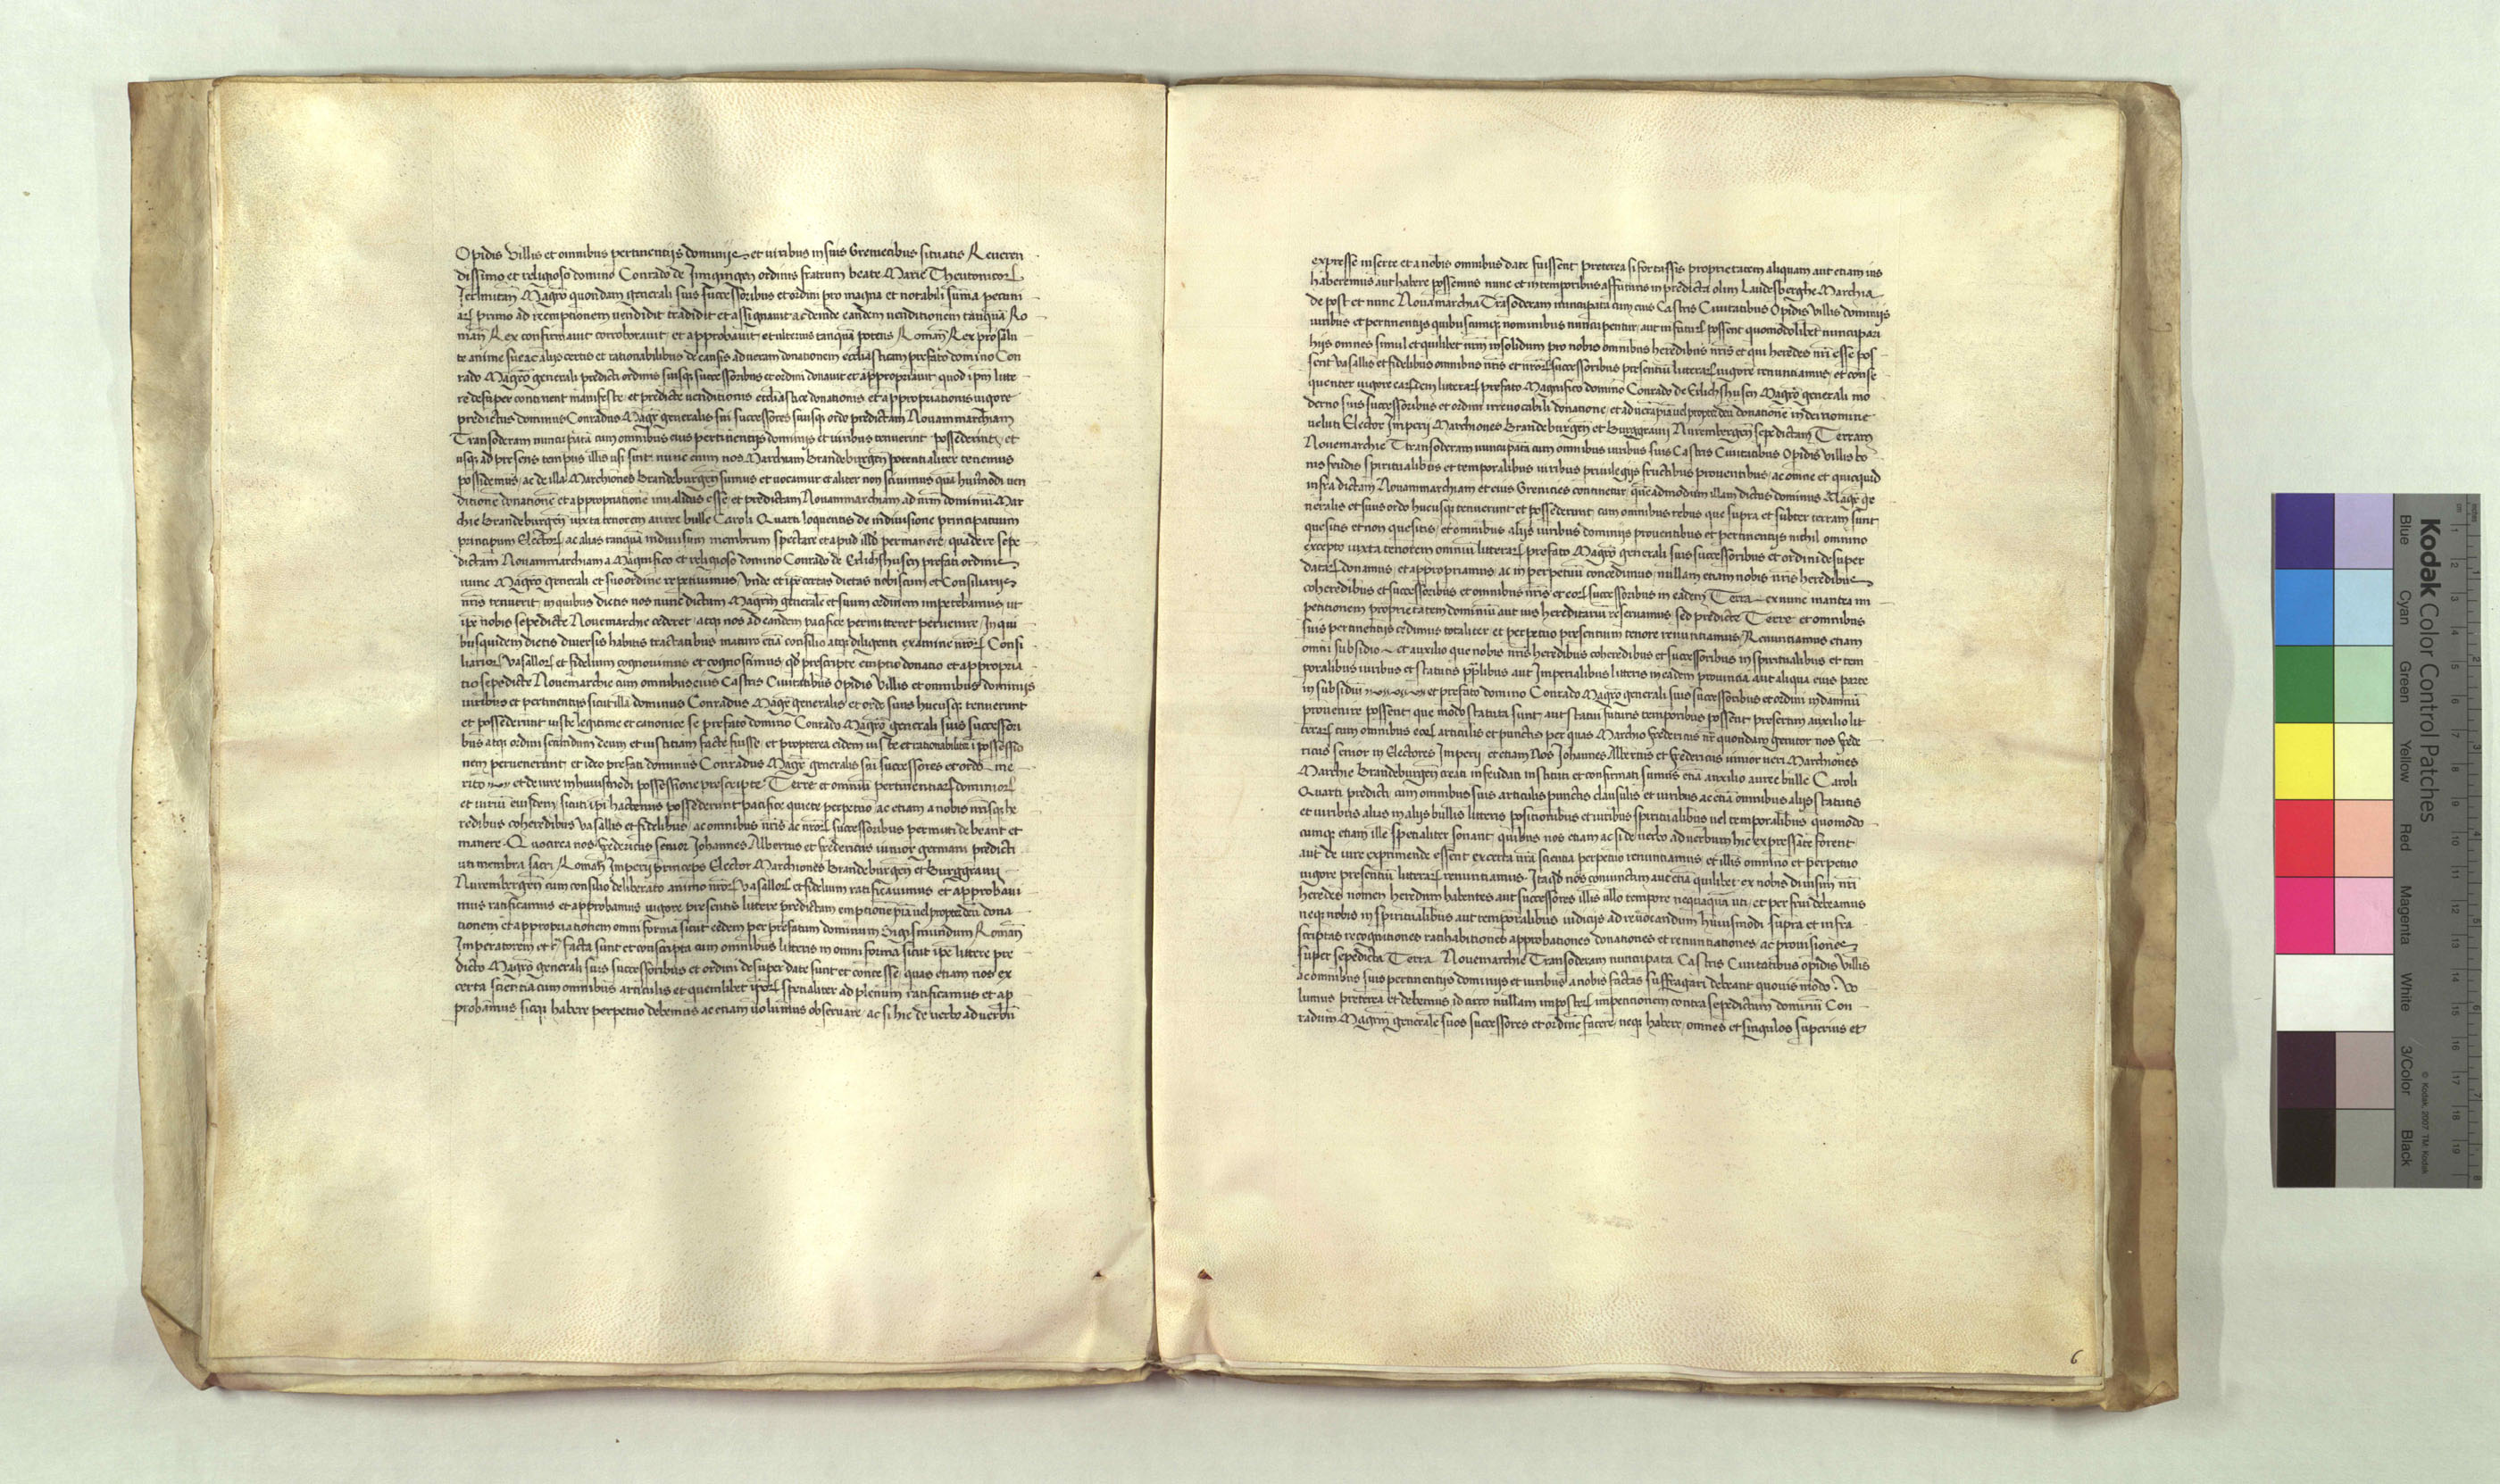 Opidis Villis et omnibus pertinentijs dominijs et iuribus in suis Greniczibus situatis Reueren
dissimo et religioso domino Conrado de Jungingen ordinis fratrum beate Marie Theutonicorum
Jerlmitan Magro quondam generali suis successoribus et ordini pro magna et notabili suma pecuni
arum primo ad reemptionem vendidit tradidit et assignauit ac deinde eandem venditionem tanquam Ro
manorum Rex confirmauit corroborauit et approbauit et ulterius tanquam potens Romanorum Rex pro salu
te anime sue ac alijs certis et rationabilibus de causis ad veram donationem ecclesiasticam prefato domino Con
rado Magro generali predicti ordinis suisque successoribus et ordini donauit et appropriauit quod ipm litte
re desuper continent manifeste et predicte venditionis ecclesiastice donationis et appropriationis vigore
predictus dominus Conradus Magr generalis sui successores suusque ordo predictam Nouammarchiam
Transoderam nuncupatam cum omnibus eius pertinentijs dominijs et iuribus tenuerint possederint et
usque ad presens tempus illis usi sunt nunc enim nos Marchiam Brandeburgen potentialiter tenemus
possidemus ac de illa Marchiones Brandeburgen sumus et vocamur et aliter non scimus quam huiusmodi ven
ditionem donationem et appropriationem inualidas esse et predictam Nouammarchiam ad nrm dominium Mar
chie Brandeburgen iuxta tenorem auree bulle Caroli Quarti loquentis de indiuisione principatuum
principum Electorum ac alias tanquam indiuisum membrum spectare et apud illud permanere qua de re sepe
dictam Nouammarchiam a Magnifico et religioso domino Conrado de Erlichshusen prefati ordinis
nunc Magro generali et suo ordine repetiuimus Unde et ipe certas dietas nobiscum et Consiliarijs
nris tenuerit in quibus dietis nos nunc dictum Magrm generalem et suum ordinem impetebamus ut
ipe nobis sepedicte Nouemarchie cederet atque nos ad eandem pacifice permitteret peruenire In qui
busquidem dietis diuersis habitis tractatibus maturo etiam consilio atque diligenti examine nrorum Consi
liariorum Vasallorum et fidelium cognouimus et cognoscimus quod prescripte emptio donatio et appropria
tio sepedicte Nouemarchie cum omnibus eius Castris Ciuitatibus Opidis Villis et omnibus dominijs
iuribus et pertinentijs sicut illam dominus Conradus Magr generalis et ordo suus hucusque tenuerunt
et possederunt iuste legitime et canonice se prefato domino Conrado Magro generali suis successori
bus atque ordini secundum deum et iustitiam facte fuisse et propterea eidem iuste et rationabiliter in possessio
nem peruenerunt et ideo prefati dominus Conradus Magr generalis sui successores et ordo me
rito et de iure in huiusmodi possessione prescripte Terre et omnium pertinentiarum dominiorum
et iurium eiusdem sicuti ipi hactenus possederunt pacifice quiete perpetuo ac etiam a nobis nrisque he
redibus coheredibus Vasallis et fidelibus ac omnibus nris ac nrorum successoribus permitti debeant et
manere Quocirca nos Fredericus senior Johannes Albertus et Fredericus iunior germani predicti
uti membra sacri Romani Imperij princeps Elector Marchiones Brandeburgen et Burggrauij
Nurembergen cum consilio deliberato animo nrorum Vasallorum et fidelium ratificauimus et approbaui
mus ratificamus et approbamus vigore presentis littere predictam emptionem piam vel propter deum dona
tionem et appropriationem omni forma sicut eedem per prefatum dominum Sigismundum Romanorum
Imperatorem etc facta sunt et conscripta cum omnibus litteris in omni forma sicut ipe littere pre
dicto Magro generali suis successoribus et ordini desuper date sunt et concesse quas etiam nos ex
certa scientia cum omnibus articulis et quemlibet ipsorum spetialiter ad plenum ratificamus et ap
probamus sicque habere perpetuo debemus ac etiam volumus obseruare ac si hic de verbo ad verbum
expresse inserte et a nobis omnibus date fuissent preterea si fortassis proprietatem aliquam aut etiam ius
haberemus aut habere possemus nunc et in temporibus affuturis in predicta olim Landesberghe Marchia
de post et nunc Nouamarchia Transoderam nuncupata cum eius Castris Ciuitatibus Opidis Villis dominijs
iuribus et pertinentijs quibuscumque nominibus nuncupentur aut in futurum possent quomodolibet nuncupari
hijs omnes simul et quilibet nrm insolidum pro nobis omnibus heredibus nris et qui heredes nri esse pos
sent Vasallis et fidelibus omnibus nris et nrorum successoribus presentium litterarum vigore renuntiamus et conse
quenter vigore earundem litterarum prefato Magnifico domino Conrado de Erlichshusen Magro generali mo
derno suis successoribus et ordini irreuocabili donatione et ad veram piam vel propter deum donationem in dei nomine
veluti Elector Imperij Marchiones Brandeburgen et Burggrauij Nurembergen sepedictam Terram
Nouemarchie Transoderam nuncupatam cum omnibus iuribus suis Castris Ciuitatibus Opidis Villis bo
nis feudis spiritualibus et temporalibus iuribus priuilegijs fructibus prouentibus ac omne et quicquid
infra dictam Nouammarchiam et eius Grenicies continetur quemadmodum illam dictus dominus Magr ge
neralis et suus ordo hucusque tenuerunt et possederunt cum omnibus rebus que supra et subter terram sunt
quesitis et non quesitis et omnibus alijs iuribus dominijs prouentibus et pertinentijs nichil omnino
excepto iuxta tenorem omnium litterarum prefato Magro generali suis successoribus et ordini desuper
datarum donamus et appropriamus ac in perpetuum concedimus nullam etiam nobis nris heredibus
coheredibus et successoribus et omnibus nris et eorum successoribus in eadem Terra ex nunc in antea im
petitionem proprietatem dominium aut ius hereditarium reseruamus sed predicte Terre et omnibus
suis pertinentijs cedimus totaliter et perpetuo presentium tenore renuntiamus Renuntiamus etiam
omni subsidio et auxilio que nobis nris heredibus coheredibus et successoribus in spiritualibus et tem
poralibus iuribus et statutis papalibus aut Imperialibus litteris in eadem prouincia aut aliqua eius parte
in subsidium et prefato domino Conrado Magro generali suis successoribus et ordini in damnum
prouenire possent que modo statuta sunt aut statui futuris temporibus possent presertim auxilio lit
terarum cum omnibus eorum articulis et punctis per quas Marchio Fredericus nr quondam genitor nos Frede
ricus senior in Electores Imperij et etiam Nos Johannes Albertus et Fredericus iunior veri Marchiones
Marchie Brandeburgen creati infeudati instituti et confirmati sumus etiam auxilio auree bulle Caroli
Quarti predicti cum omnibus suis articulis punctis clausulis et iuribus ac etiam omnibus alijs statutis
et iuribus alias in alijs bullis litteris positionibus et iuribus spiritualibus vel temporalibus quomodo
cumque etiam ille spetialiter sonant quibus nos etiam ac si de verbo ad verbum hic expressate forent
aut de iure exprimende essent ex certa nra scientia perpetuo renuntiamus et illis omnino et perpetuo
vigore presentium litterarum renuntiamus Itaque nos coniunctim aut etiam quilibet ex nobis diuisim nri
heredes nomen heredum habentes aut successores illis ullo tempore nequaquam uti et perfrui debeamus
neque nobis in spiritualibus aut temporalibus iudicijs ad reuocandum huiusmodi supra et infra
scriptas recognitiones ratihabitiones approbationes donationes et renuntiationes ac prouisiones
super sepedicta Terra Nouemarchie Transoderam nuncupata Castris Ciuitatibus opidis Villis
ac omnibus suis pertinentijs dominijs et iuribus a nobis factas suffragari debeant quouis modo Vo
lumus preterea et debemus idcirco nullam imposterum impetitionem contra sepedictum dominum Con
radum Magrm generalem suos successores et ordinem facere neque habere omnes et singulos superius et
6
Kodak Color Control Patches
Blue Cyan Green Yellow Red Magenta White 3/Color Black
© Kodak, 2007 TM: Kodak